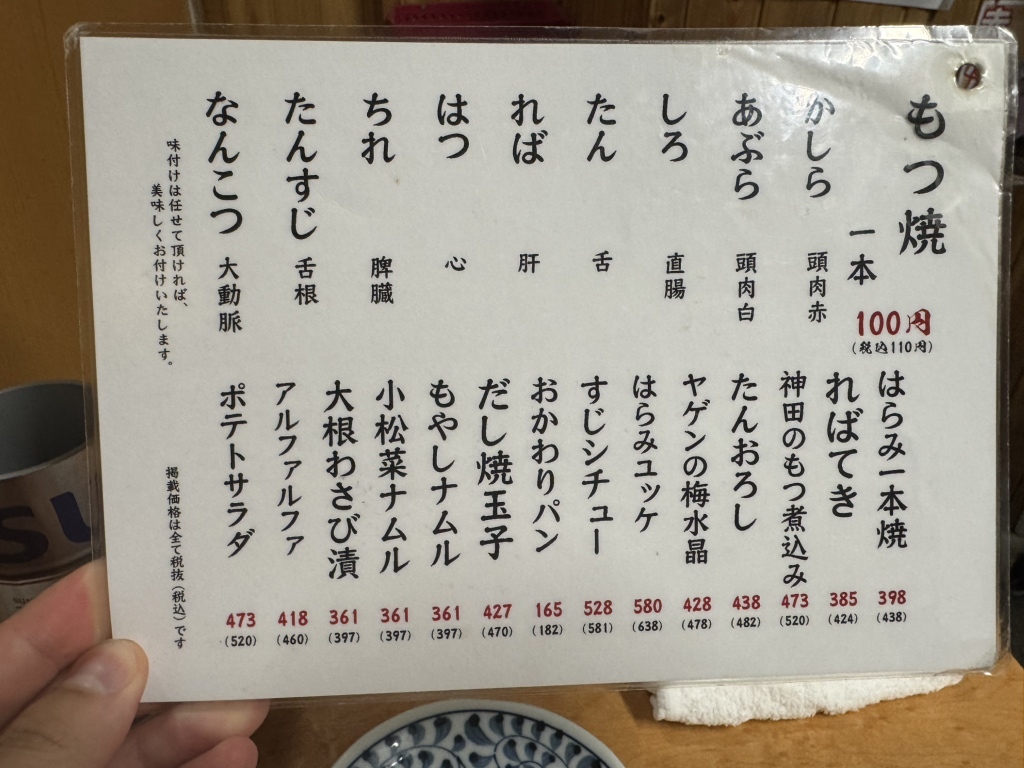 もつ焼
一本 100円
(税込110円)
かしら 頭肉赤
あぶら 頭肉白
しろ 直腸
たん 舌
れば 肝
はつ 心
ちれ 脾臓
たんすじ 舌根
なんこつ 大動脈
味付けは任せて頂ければ、
美味しくお付けいたします。
はらみ一本焼 398 (438)
ればてき 385 (424)
神田のもつ煮込み 473 (520)
たんおろし 438 (482)
ヤゲンの梅水晶 428 (478)
はらみユッケ 580 (638)
すじシチュー 528 (581)
おかわりパン 165 (182)
だし焼玉子 427 (470)
もやしナムル 361 (397)
小松菜ナムル 361 (397)
大根わさび漬 361 (397)
アルファルファ 418 (460)
ポテトサラダ 473 (520)
掲載価格は全て税抜(税込)です